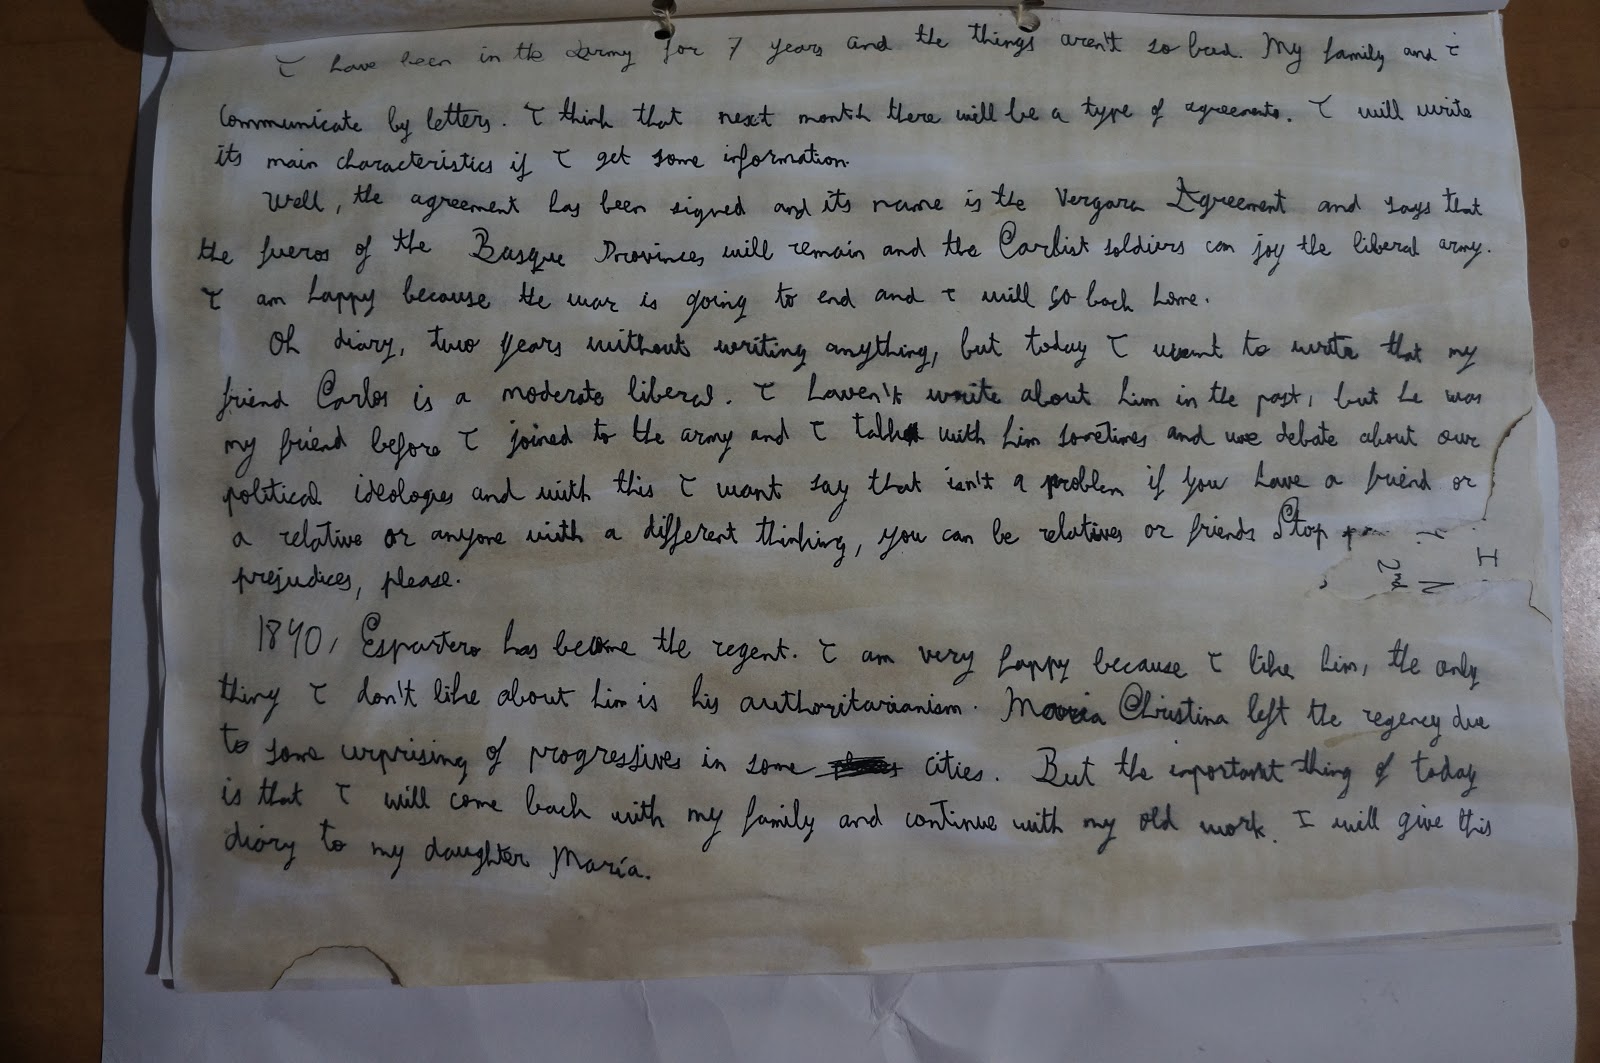 I have been in the army for 7 years and the things aren't so bad. My family and i
communicate by letters. I think that next month there will be a type of agreements. I will write
its main characteristics if I get some information.
Well, the agreement has been signed and its name is the Vergara Agreement and says that
the fueros of the Basque Provinces will remain and the Carlist soldiers can joy the liberal army.
I am happy because the war is going to end and I will go back home.
Oh diary, two years without writing anything, but today I want to write that my
friend Carlos is a moderate liberal. I haven't write about him in the past, but he was
my friend before I joined to the army and I talk with him sometimes and we debate about our
political ideologies and with this I want say that isn't a problem if you have a friend or
a relative or anyone with a different thinking, you can be relatives or friends Stop
prejudices, please.
2nd
1840, Espartero has become the regent. I am very happy because I like him, the only
thing I don't like about him is his authoritarianism. Maria Christina left the regency due
to some urprising of progressives in some cities. But the important thing of today
is that I will come back with my family and continue with my old work. I will give this
diary to my daughter María.